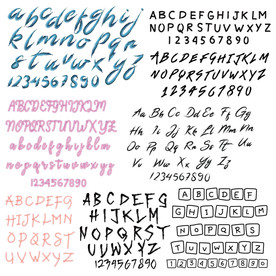 abcdefghi
jklmnopqr
stuvwxyz
1234567890
ABCDEFGHIJKLM
NOPQRSTUVWXYZ
1234567890
ABCDEFGHIJKLM
NOPQRSTUVWXYZ
1234567890
ABCDEFGHIJKLM
NOPQRSTUVWXYZ
abcdefghijklm
nopqrstuvwxyz
1234567890
Aa Bb Cc Dd Ee Ff Gg
Hh Ii Jj Kk Ll Mm Nn
Oo Pp Qq Rr Ss Tt Uu
Vv Ww Xx Yy Zz
1234567890
ABCDEFG
HIJKLMN
OPQRST
UVWXYZ
ABCDEFG
HIJKLMN
OPQRST
UVWXYZ
1234567890
ABCDE
FGHIJK
LMNOP
QRSTU
VWXYZ
1234567890